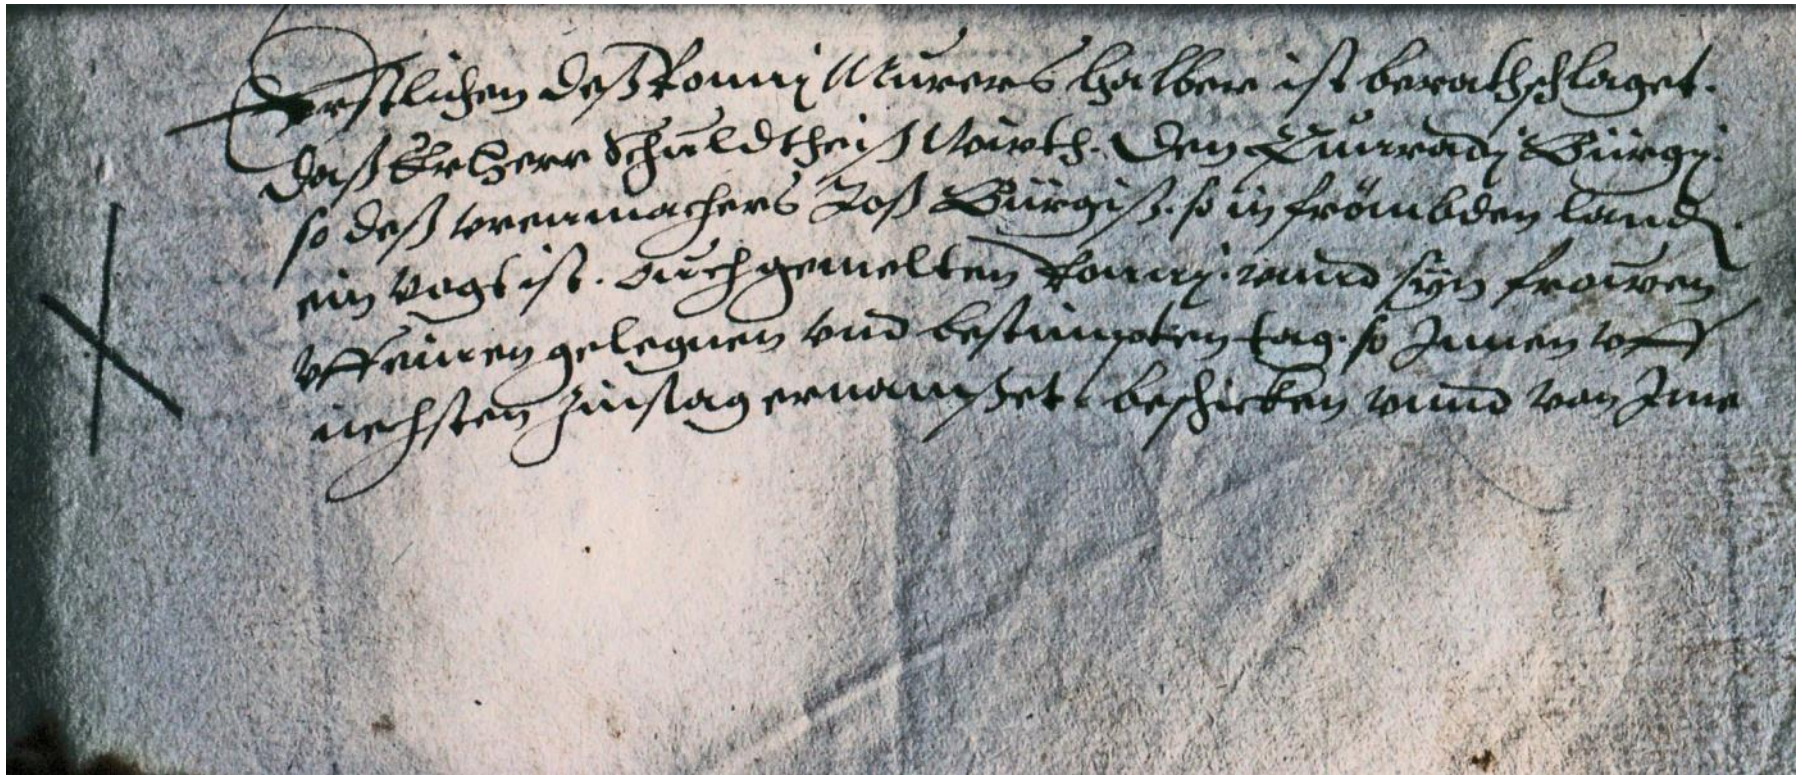 Erstlichen deß Ronny Murers halber ist berathschlaget.
daß Er Herr Schuldtheiß Wirth. den Cunradj Bürgj.
so deß vrenmachers Jost Bürgiß. so in frömbden land.
ein vogt ist. ouch gemelten Ronnj. vnnd syn frowen
vff einen gelegnen vnd bestimpten tag. so Innen vff
nechsten Zinstag ernamßet. beschicken vnnd von Ime